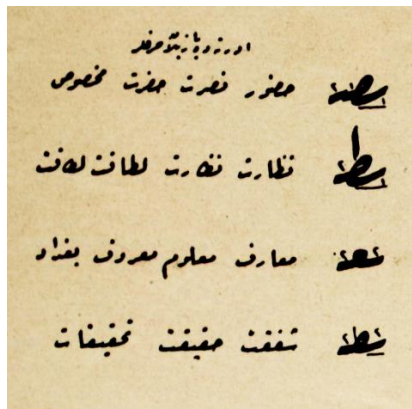 حرفلر
حضور نصرت حضرت مخصوص
نظارت نظارت لطافت لطافت
معارف معلوم معروف بغداد
شفقت حقیقت تحقیقات